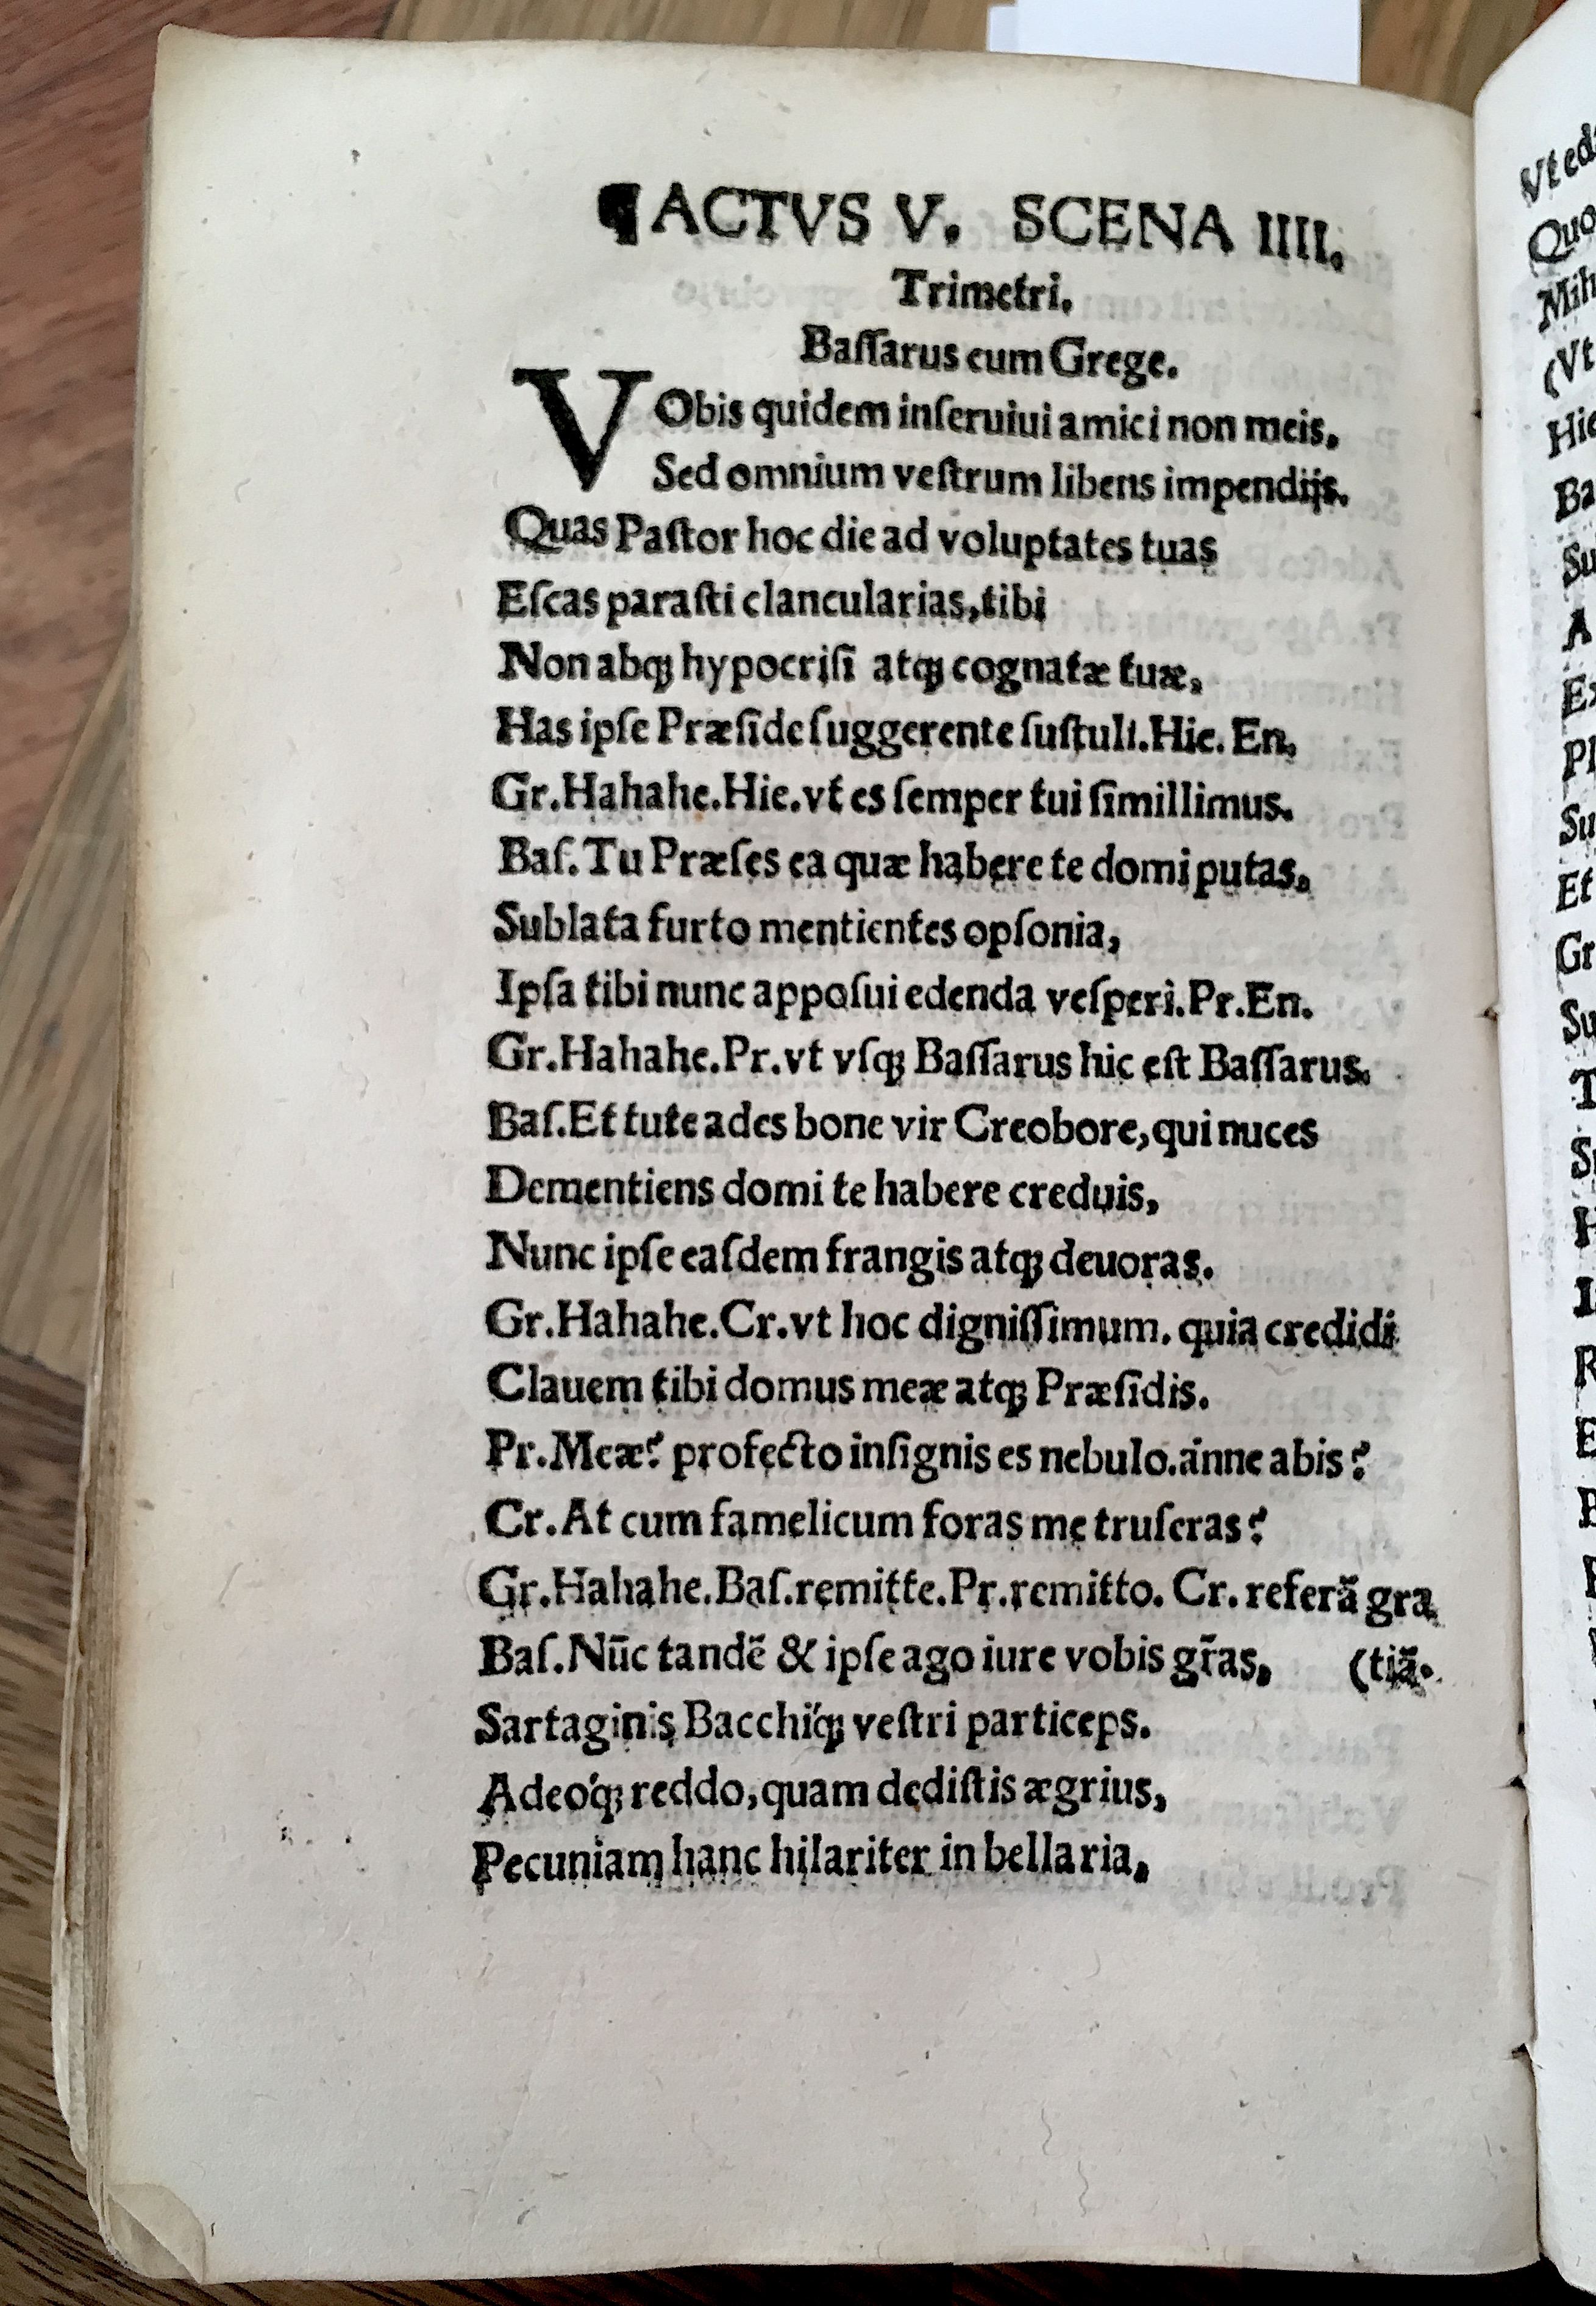 ¶ ACTVS V. SCENA IIII.
Trimetri.
Baſſarus cum Grege.
VObis quidem inſeruiui amici non meis.
Sed omnium veſtrum libens impendijs.
Quas Paſtor hoc die ad voluptates tuas
Eſcas paraſti clancularias, tibi
Non abqꝫ hypocriſi atqꝫ cognatæ tuæ,
Has ipſe Præſide ſuggerente ſuſtuli. Hie. En,
Gr. Hahahe. Hie. vt es ſemper tui ſimillimus.
Baſ. Tu Præſes ea quæ habere te domi putas,
Sublata furto mentientes opſonia,
Ipſa tibi nunc appoſui edenda veſperi. Pr. En.
Gr. Hahahe. Pr. vt vſqꝫ Baſſarus hic eſt Baſſarus.
Baſ. Et tute ades bone vir Creobore, qui nuces
Dementiens domi te habere creduis,
Nunc ipſe eaſdem frangis atqꝫ deuoras.
Gr. Hahahe. Cr. vt hoc digniſſimum. quia credidi
Clauem tibi domus meæ atqꝫ Præſidis.
Pr. Meæ? profecto inſignis es nebulo. ánne abis?
Cr. At cum famelicum foras me truſeras?
Gr. Hahahe. Baſ. remitte. Pr. remitto. Cr. referā gra
Baſ. Nūc tandē & ipſe ago iure vobis gr̃as, (tiā.
Sartaginis Bacchíqꝫ veſtri particeps.
Adeóqꝫ reddo, quam dediſtis ægrius,
Pecuniam hanc hilariter in bellaria,
Vt ed
Quo
Mih
(Vt
Hic
Ba
Su
A
Pl
Su
Et
Gr
Su